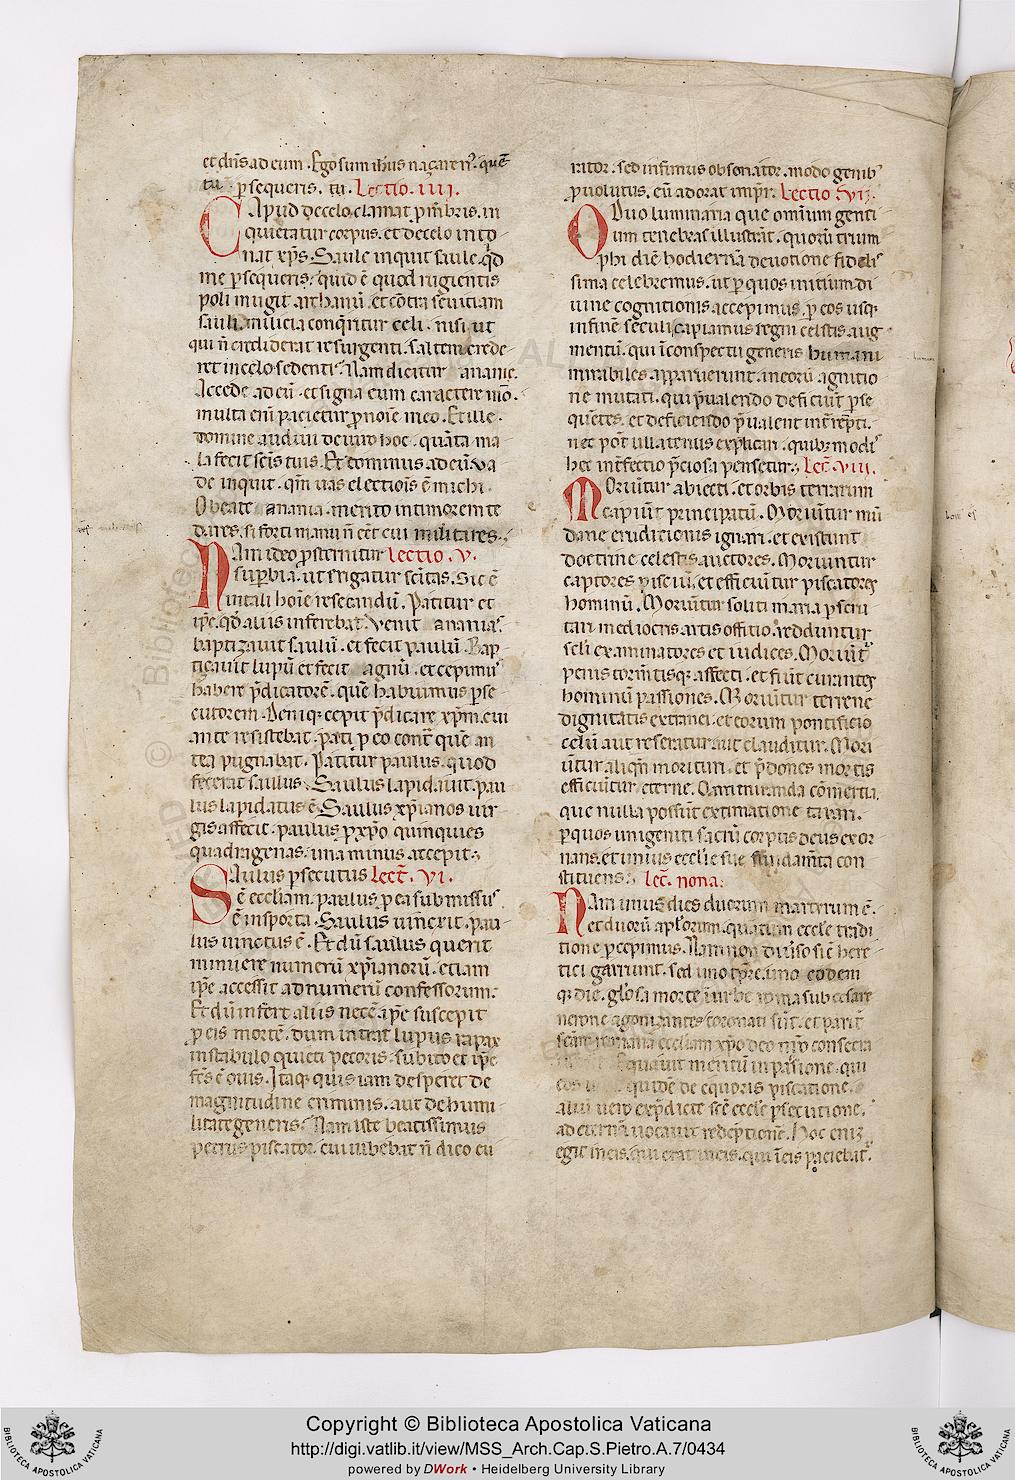 et dn̄s ad eum. Ego sum ih̄us naçaren᷒. quē
tu ꝑsequeris. tu. Lectio. IIII.
Caput de celo clamat ꝓ mēbris. in
quietatur corpus. et de celo into-
nat xp̄s. Saule inquit saule. qd̄
me ꝑsequeris: quid ē quod rugientis
poli mugit archanū. et cōtra seuitiam
sauli milicia conqͥritur celi. nisi ut
qui n̄ crediderat resurgenti. saltem crede-
ret in celo sedenti. Nam dicitur ananie.
Accede ad eū. et signa eum caractere meo.
multa eni᷒ pacietur ꝓ noīe meo. Et ille.
domine audiui de uiro hoc. quāta ma-
la fecit scīs tuis. Et dominus ad eū. va
de inquit. qm̄ uas electiōis ē michi.
O beate anania. merito in timorem te
dares. si forti manu n̄ eēt cui milites.
Nam ideo ꝓsternitur Lectio. V.
suꝑbia. ut erigatur scītas. Sic ē
in tali hoīe resecandū. Patitur et
ip̄e. qd̄ aliis inferebat. Venit ananias.
baptizauit saulū. et fecit paulū. Bap-
tiçauit lupū et fecit agnū. et cepimus
habere p̄dicatorē. quē habuimus ꝑse-
cutorem. Deniqꝫ cepit p̄dicare xp̄m. cui
ante resistebat. pati ꝓ eo contͣ quē an
tea pugnabat. Patitur paulus. quod
fecerat saulus. Saulus lapidauit. pau
lus lapidatus ē. Saulus xp̄ianos uir
gis affecit. paulus ꝓ xp̄o quinquies
quadragenas. una minus accepit.
Saulus ꝑsecutus Lect̄. VI.
ē eccl̄iam. paulus ꝓ ea submissus
ē in sporta. Saulus uinexit. pau
lus uinctus ē. Et dū saulus querit
minuere numerū xp̄ianorū. etiam
ip̄e accessit ad numerū confessorum.
Et dū infert aliis necē. ip̄e suscepit
ꝓ eis mortē. dum intrat lupus rapax
in stabulo quieti pecoris. subito et ip̄e
fc̄s ē ouis. Itaqꝫ quis iam desperet de
magnitudine criminis. aut de humi-
litate generis. Nam iste beatissimus
petrus piscator. cui iubebat n̄ dico cu
ritor. sed infimus obsonator. modo genibꝰ
ꝓuolutus. eū adorat impr̄. Lectio. VII.
Duo luminaria que omnium genti-
um tenebras illustrāt. quorū trium
phi diē hodierna deuotione fidelis
sima celebremus. ut ꝑ quos initium di
uine cognitionis accepimus. ꝑ eos usqꝫ
in finē seculi capiamus regni celestis aug
mentū. qui ī conspectu generis humani
mirabiles apparuerunt. in eorū agnitio
ne mutati. qui p̄ualendo deficiūt ꝑse
quētes. et deficiendo p̄ualent int̄repti.
nec pōt ullatenus explicari. quibꝫ modis
hec int̄fectio p̄ciosa pensetur. Lec̄. VIII.
Moriūtur abiecti. et orbis terrarum
capiūt principatū. Moriūtur mū
dane eruditionis ignari. et existunt
doctrine celestis auctores. Moriuntur
captores pisciū. et efficiūtur piscatores
hominū. Moriūtur soliti maria ꝑscru
tari. mediocris artis offitio. redduntur
seli examinatores et iudices. Moriūt᷒
penis tormētisqꝫ affecti. et fiūt curantes
hominū passiones. Moriūtur terrene
dignitatis extranei. et eorum pontificio
celū aut reseratur aut clauditur. Mori
ūtur aliqn̄ morituri. et p̄dones mortis
efficiūtur eterne. O amiranda cōmertia.
que nulla possūt extimatione taxari.
ꝑ quos unigeniti sacrū corpus deus exor
nans. et unius eccl̄ie sue fūdamēta con
stituens. Lec̄. nona.
Nam unus dies duorum martirum ē.
nec duorū apl̄orum. quātum eccl̄e tradi
tione ꝑcepimus. Nam non diuīso sic̄ here
tici garriunt. sed uno tp̄re. uno eodem
qꝫ die. gl̄osa morte ī urbe roma sub cesare
nerone agonizantes coronati sūt. et parit̄
scām romana eccl̄iam xp̄o deo nr̄o consecra
equāuit meritū in passione. qui
eos quidē de equoris piscatione.
aliū uero exp̄dicte scē eccl̄e ꝑsecutione.
ad eternā uocauit redēptionē. Hoc eniꝫ
egit in eis. qui erat in eis. qui ī eis paciebat᷒.
Copyright © Biblioteca Apostolica Vaticana
http://digi.vatlib.it/view/MSS_Arch.Cap.S.Pietro.A.7/0434
powered by DWork • Heidelberg University Library
BIBLIOTECA APOSTOLICA VATICANA
BIBLIOTECA APOSTOLICA VATICANA